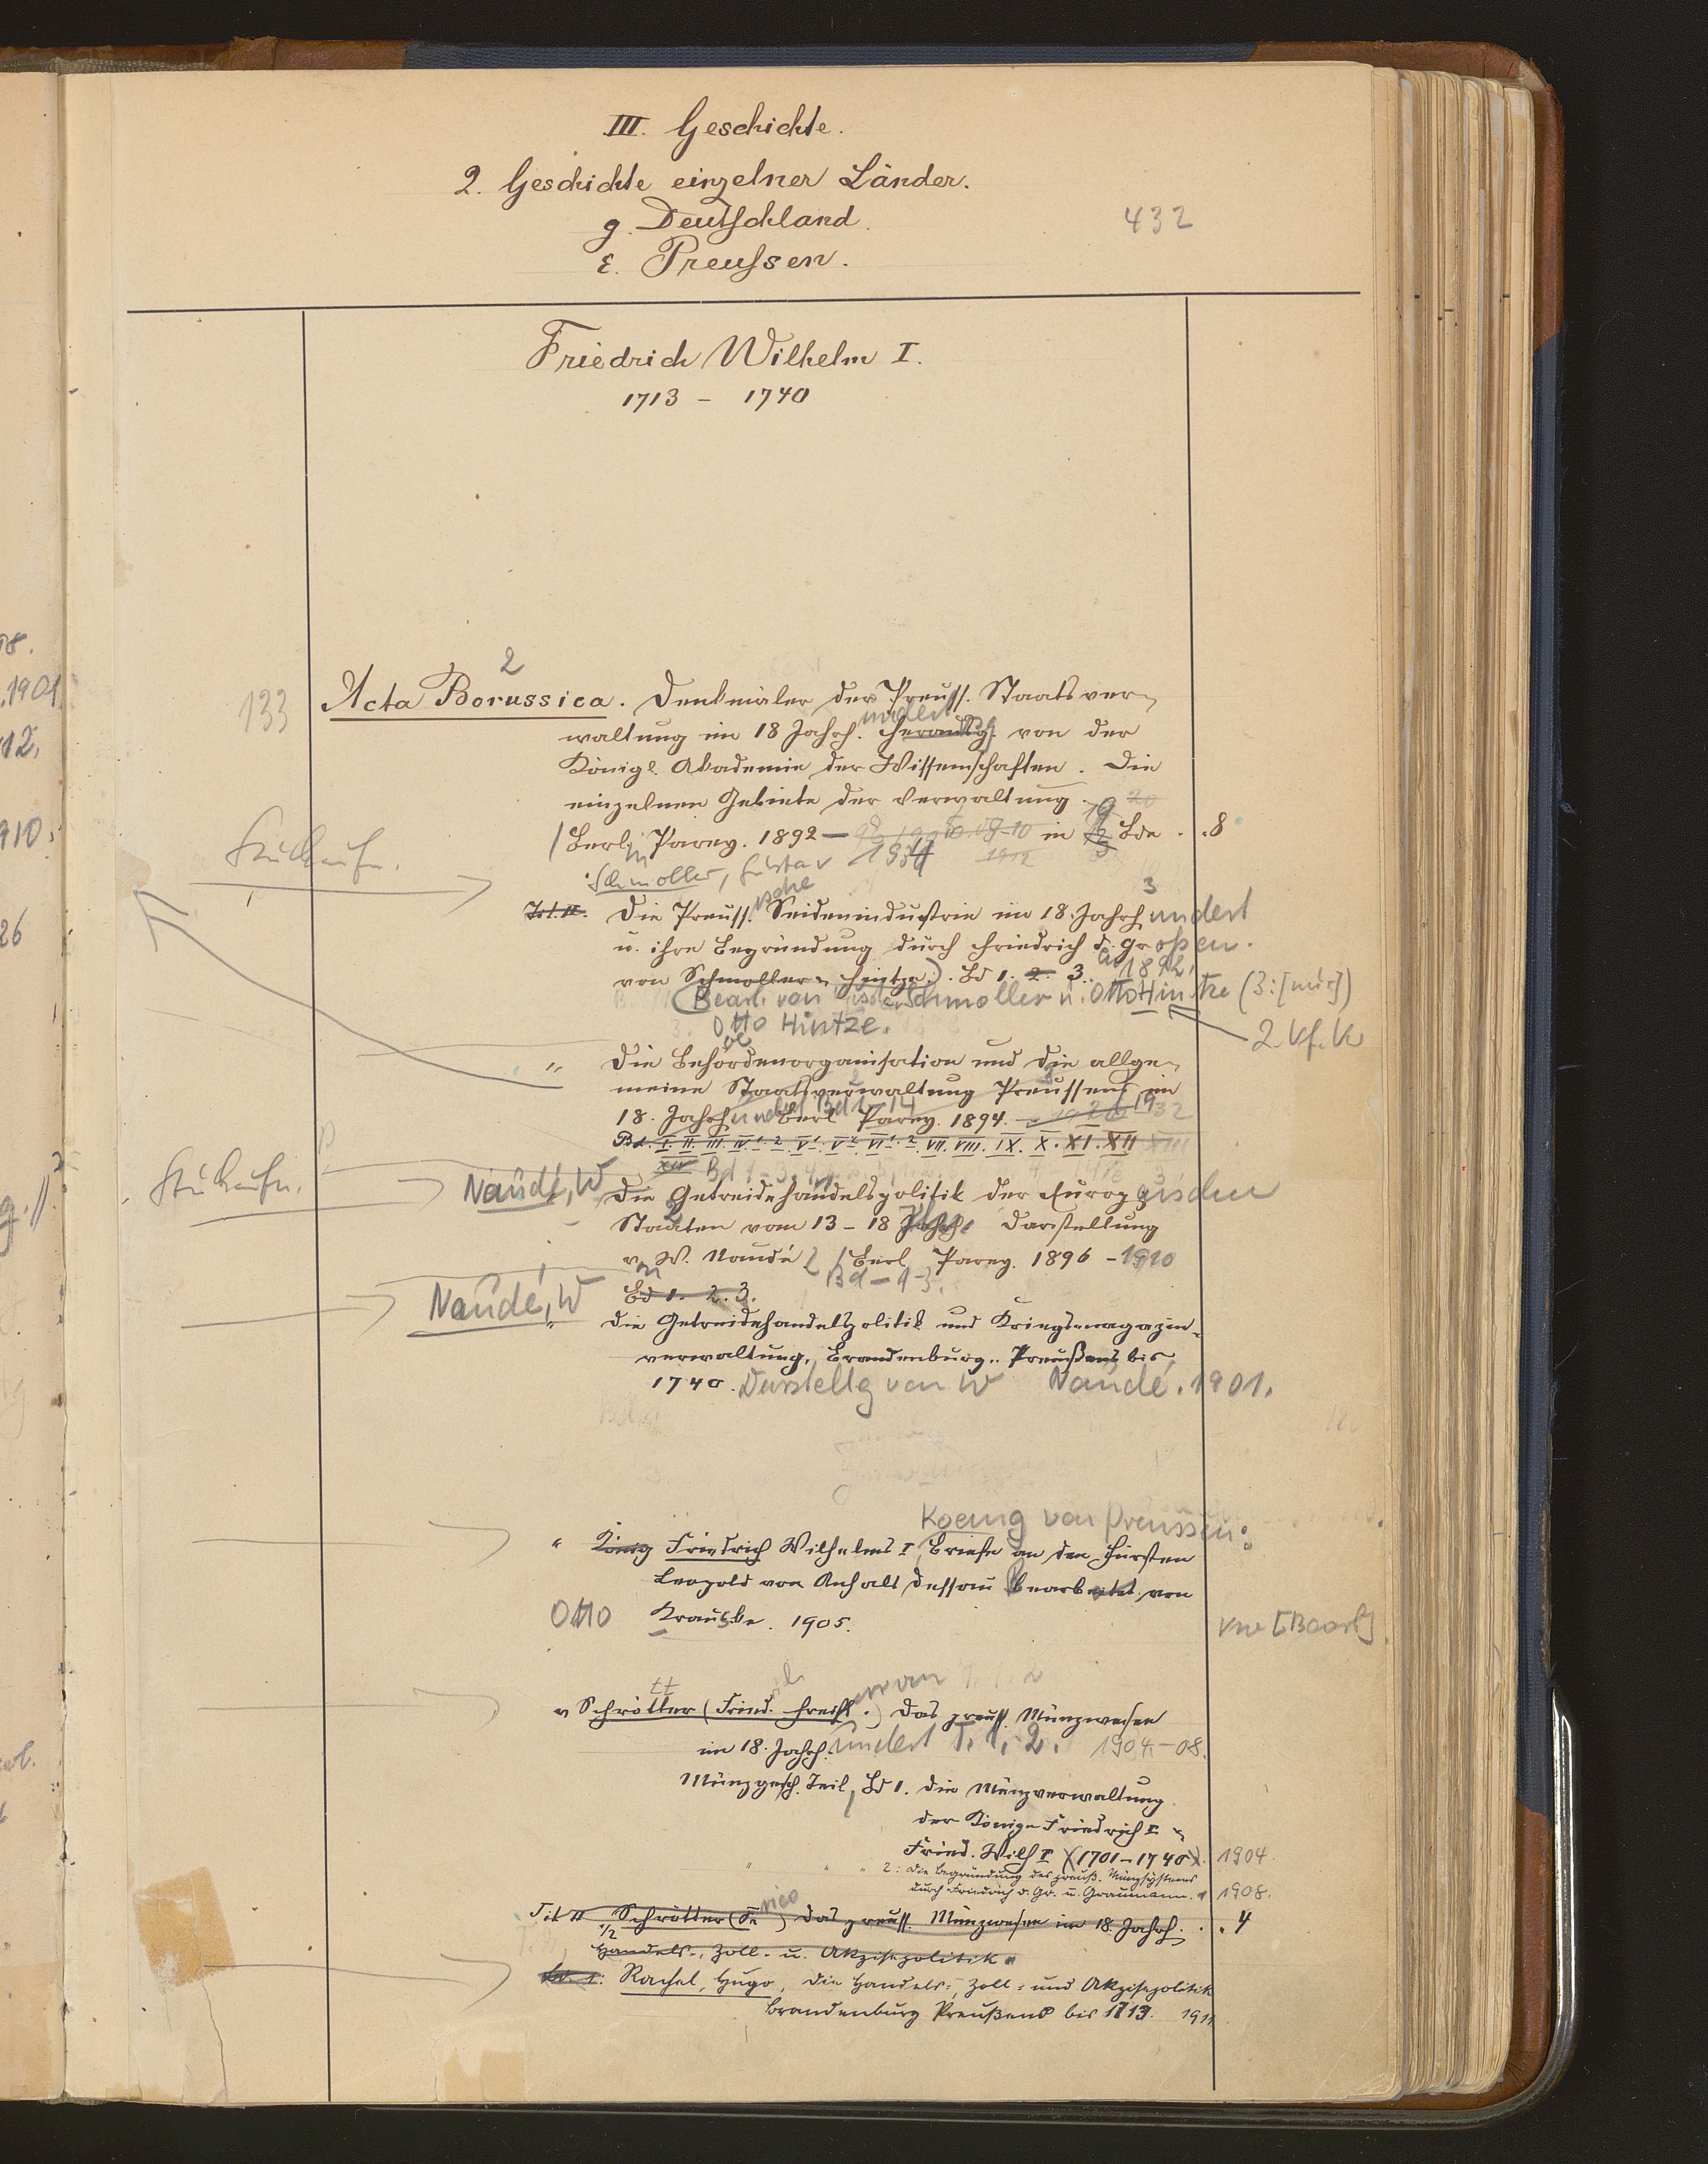 III. Geschichte.
2. Geschichte einzelner Länder.
g. Deutschland.
432
ε. Preussen.
Friedrich Wilhelm I.
1713 – 1740
2
133 Acta Borussica. Denkmäler der Preuss. Staatsver-
waltung im 18 Jahrh. undert herausg. von der
Königl. Akademie der Wissenschaften. Die
einzelnen Gebiete der Verwaltung.
Berlin Parey. 1892 — in Bde. 8
1934 1912
Schmoller, Gustav
Die Preuss. ische Seidenindustrie im 18. Jahrhundert 3
u. ihre Begründung durch Friedrich d. Großen.
von Schmoller u. Hintze). Bd 1. 2. 3. 1892,
(Bearb. von Schmoller u. Otto Hintze (3:[nur])
Otto Hintze.
2. Vf. Vw
" Die Behördenorganisation und die allge-
meine Staatsverwaltung Preussens im
18. Jahrhundert Bd 1–14 Berl Parey. 1894. 1932
Bd. I. II. III. IV 1. 2. V 1. V 2. VI 1. 2. VII. VIII. IX. X. XI. XII XIII
XIV
Naudé, W Die Getreidehandelspolitik der Europäischen
Staaten vom 13–18 Jahrh. Darstellung
v. W. Naudé Berl Parey. 1896 – 1910
Bd – 1–3.
Bd 1. 2. 3.
Naudé, W
" Die Getreidehandelspolitik und Kriegsmagazin-
verwaltung, Brandenburg-Preußens bis
1740. Darstellg von W Naudé. 1901.
Koenig von Preussen:
" König Friedrich Wilhelms I Briefe an den Fürsten
Leopold von Anhalt Dessau bearbeitet von
Otto Krauske. 1905.
Vw [Bearb].
v Schrötter (Fried. Freih.) Das preuss. Münzwesen
im 18. Jahrh. undert T. 1, 2. 1904–08.
Münzgesch. Teil, Bd 1. Die Münzverwaltung
der Könige Friedrich I u
Fried. Wilh I (1701–1740). 1904.
" " " 2: Die Begründung des preuß. Münzsystems
durch Friedrich d. Gr. u. Graumann. 1908.
Schrötter (Fr ) Das preuss. Münzwesen im 18. Jahrh. 4
Handels-, Zoll- u. Akzisepolitik
Bd. 1: Rachel, Hugo, Die Handels-, Zoll- und Akzisepolitik
Brandenburg Preußens bis 1713. 1911